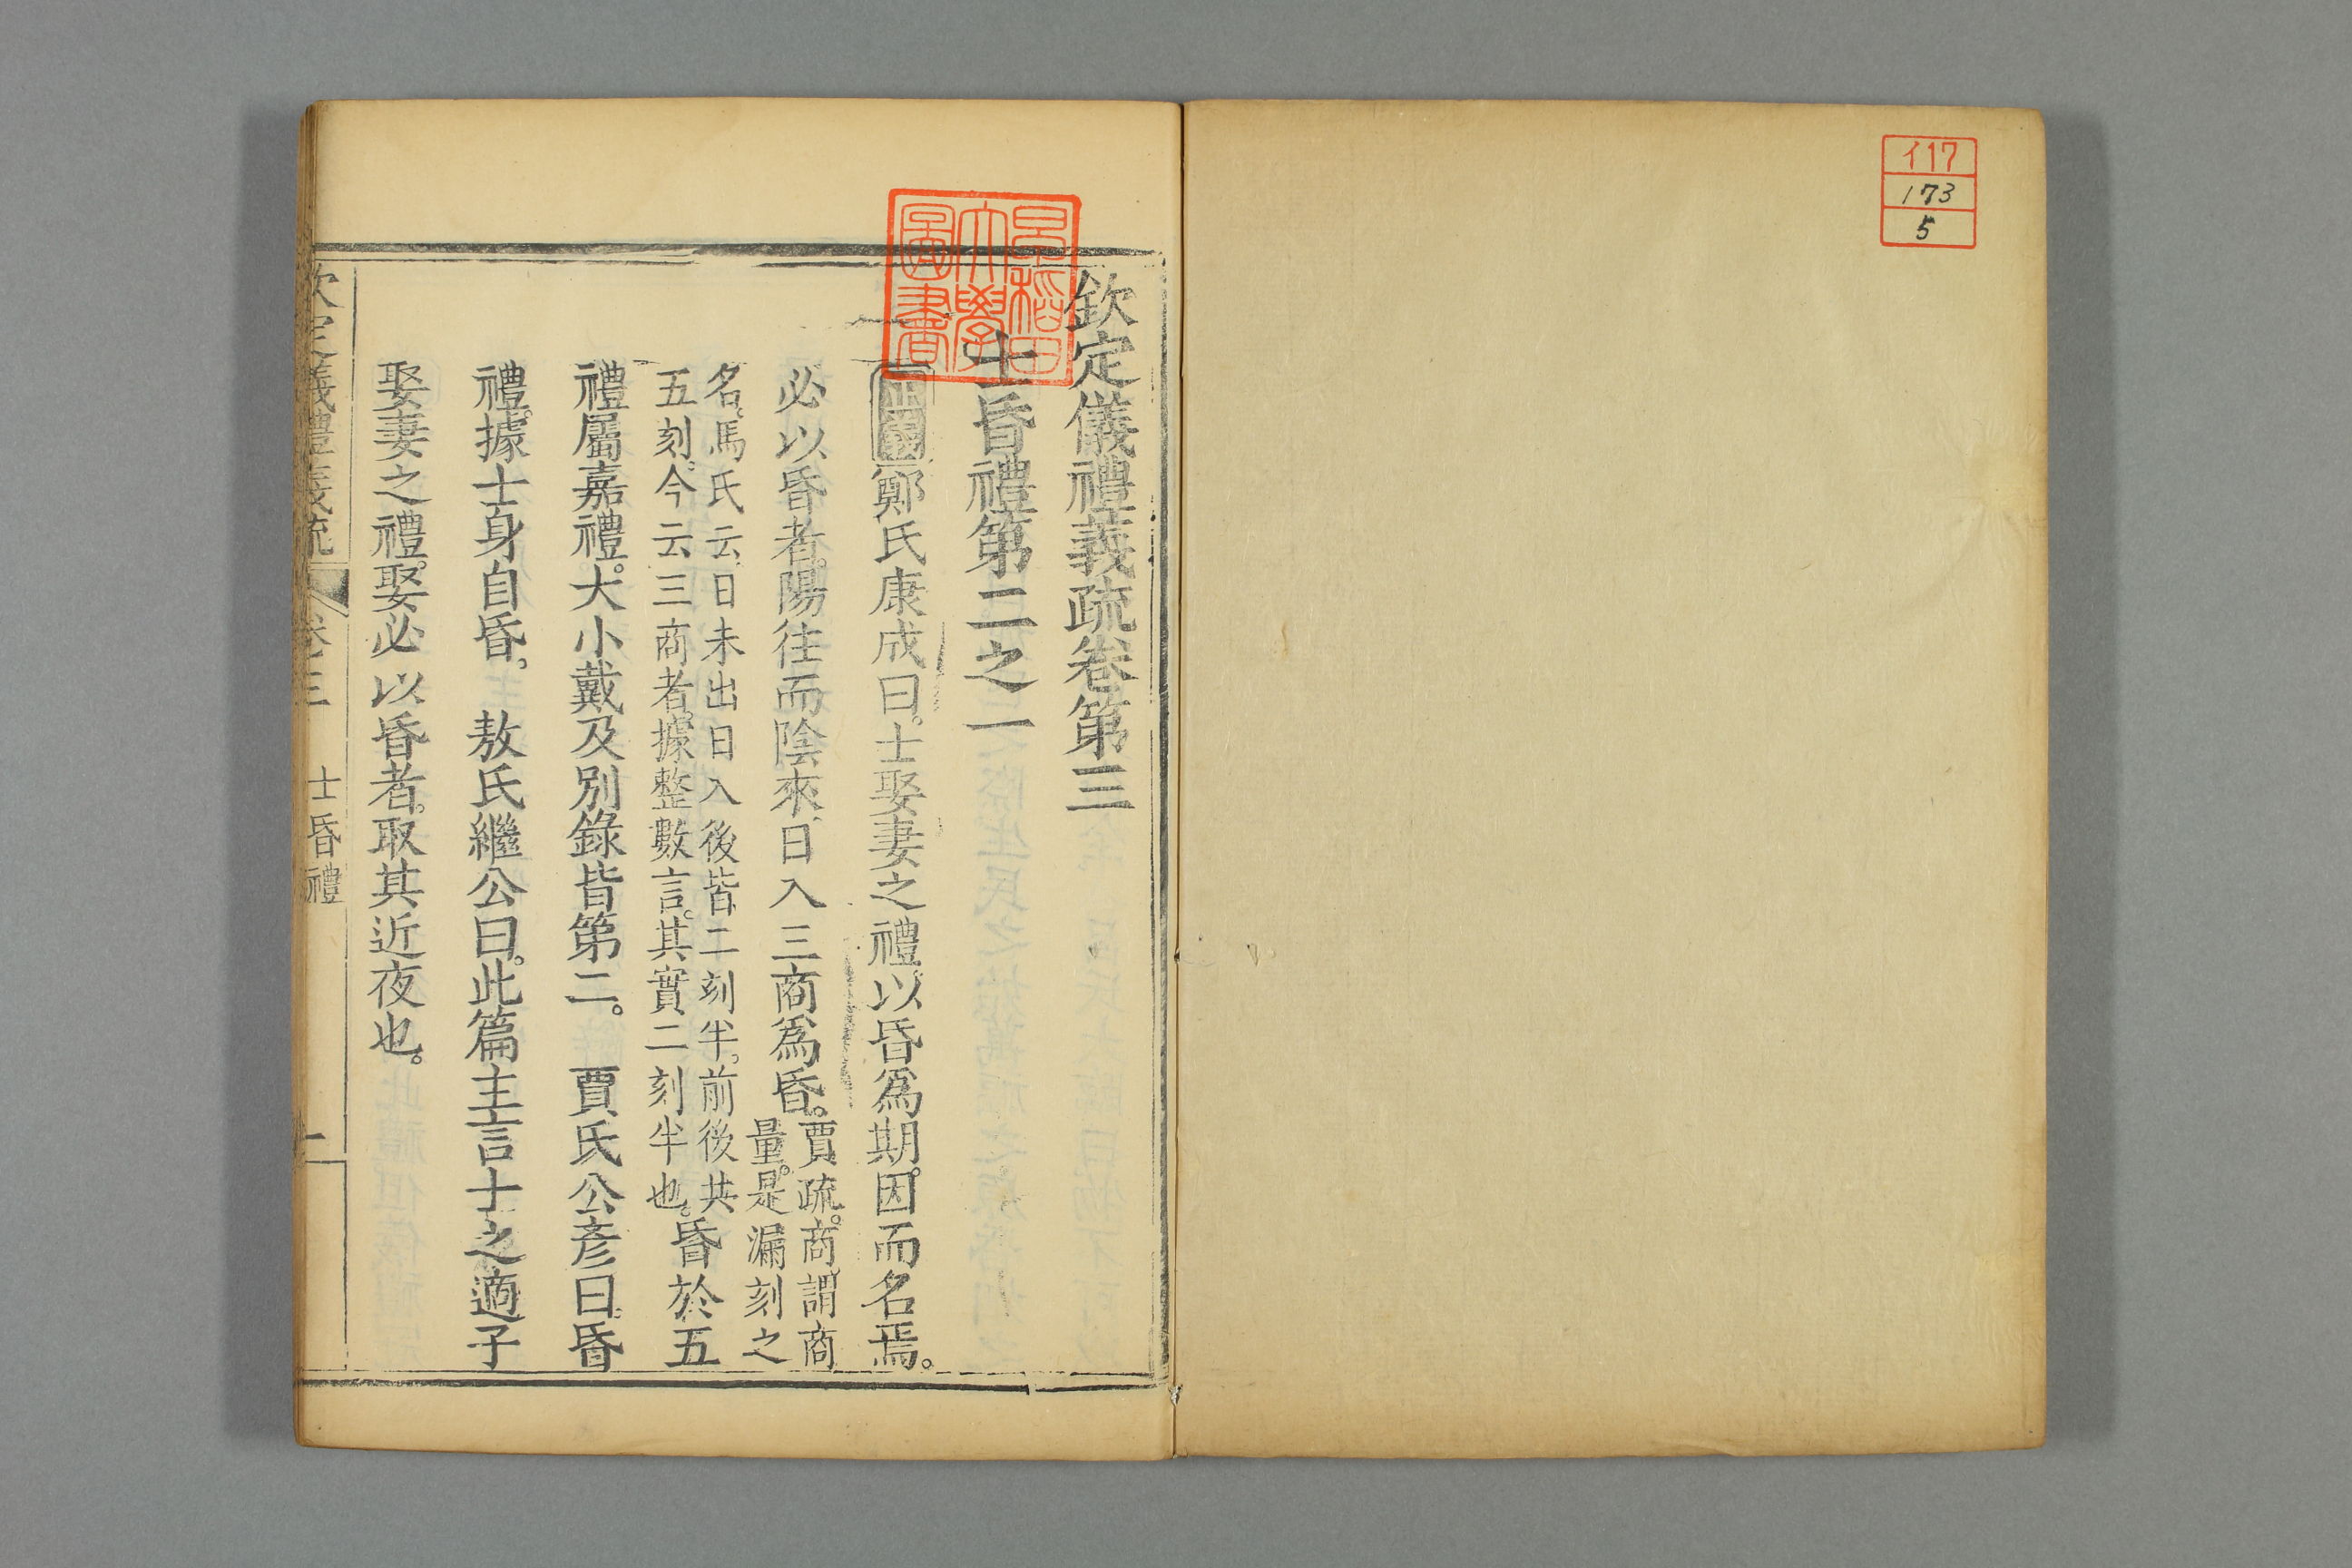 イ17
173
5
欽定儀禮義疏卷第三
士昏禮第二之一
正義鄭氏康成曰。士娶妻之禮。以昏爲期。因而名焉。
必以昏者。陽往而陰來、日入三商爲昏。賈疏。商謂商
量。是漏刻之
名。馬氏云、日未出日入後皆二刻半。前後共
五刻。今云三商者。據整數言。其實二刻半也。昏於五
禮屬嘉禮。大小戴及別錄皆第二。 賈氏公彥曰。昏
禮。據士身自昏。 敖氏繼公曰。此篇主言士之適子
娶妻之禮。娶必以昏者。取其近夜也。
欽定儀禮義疏 卷三 士昏禮 一
早稻田大學圖書